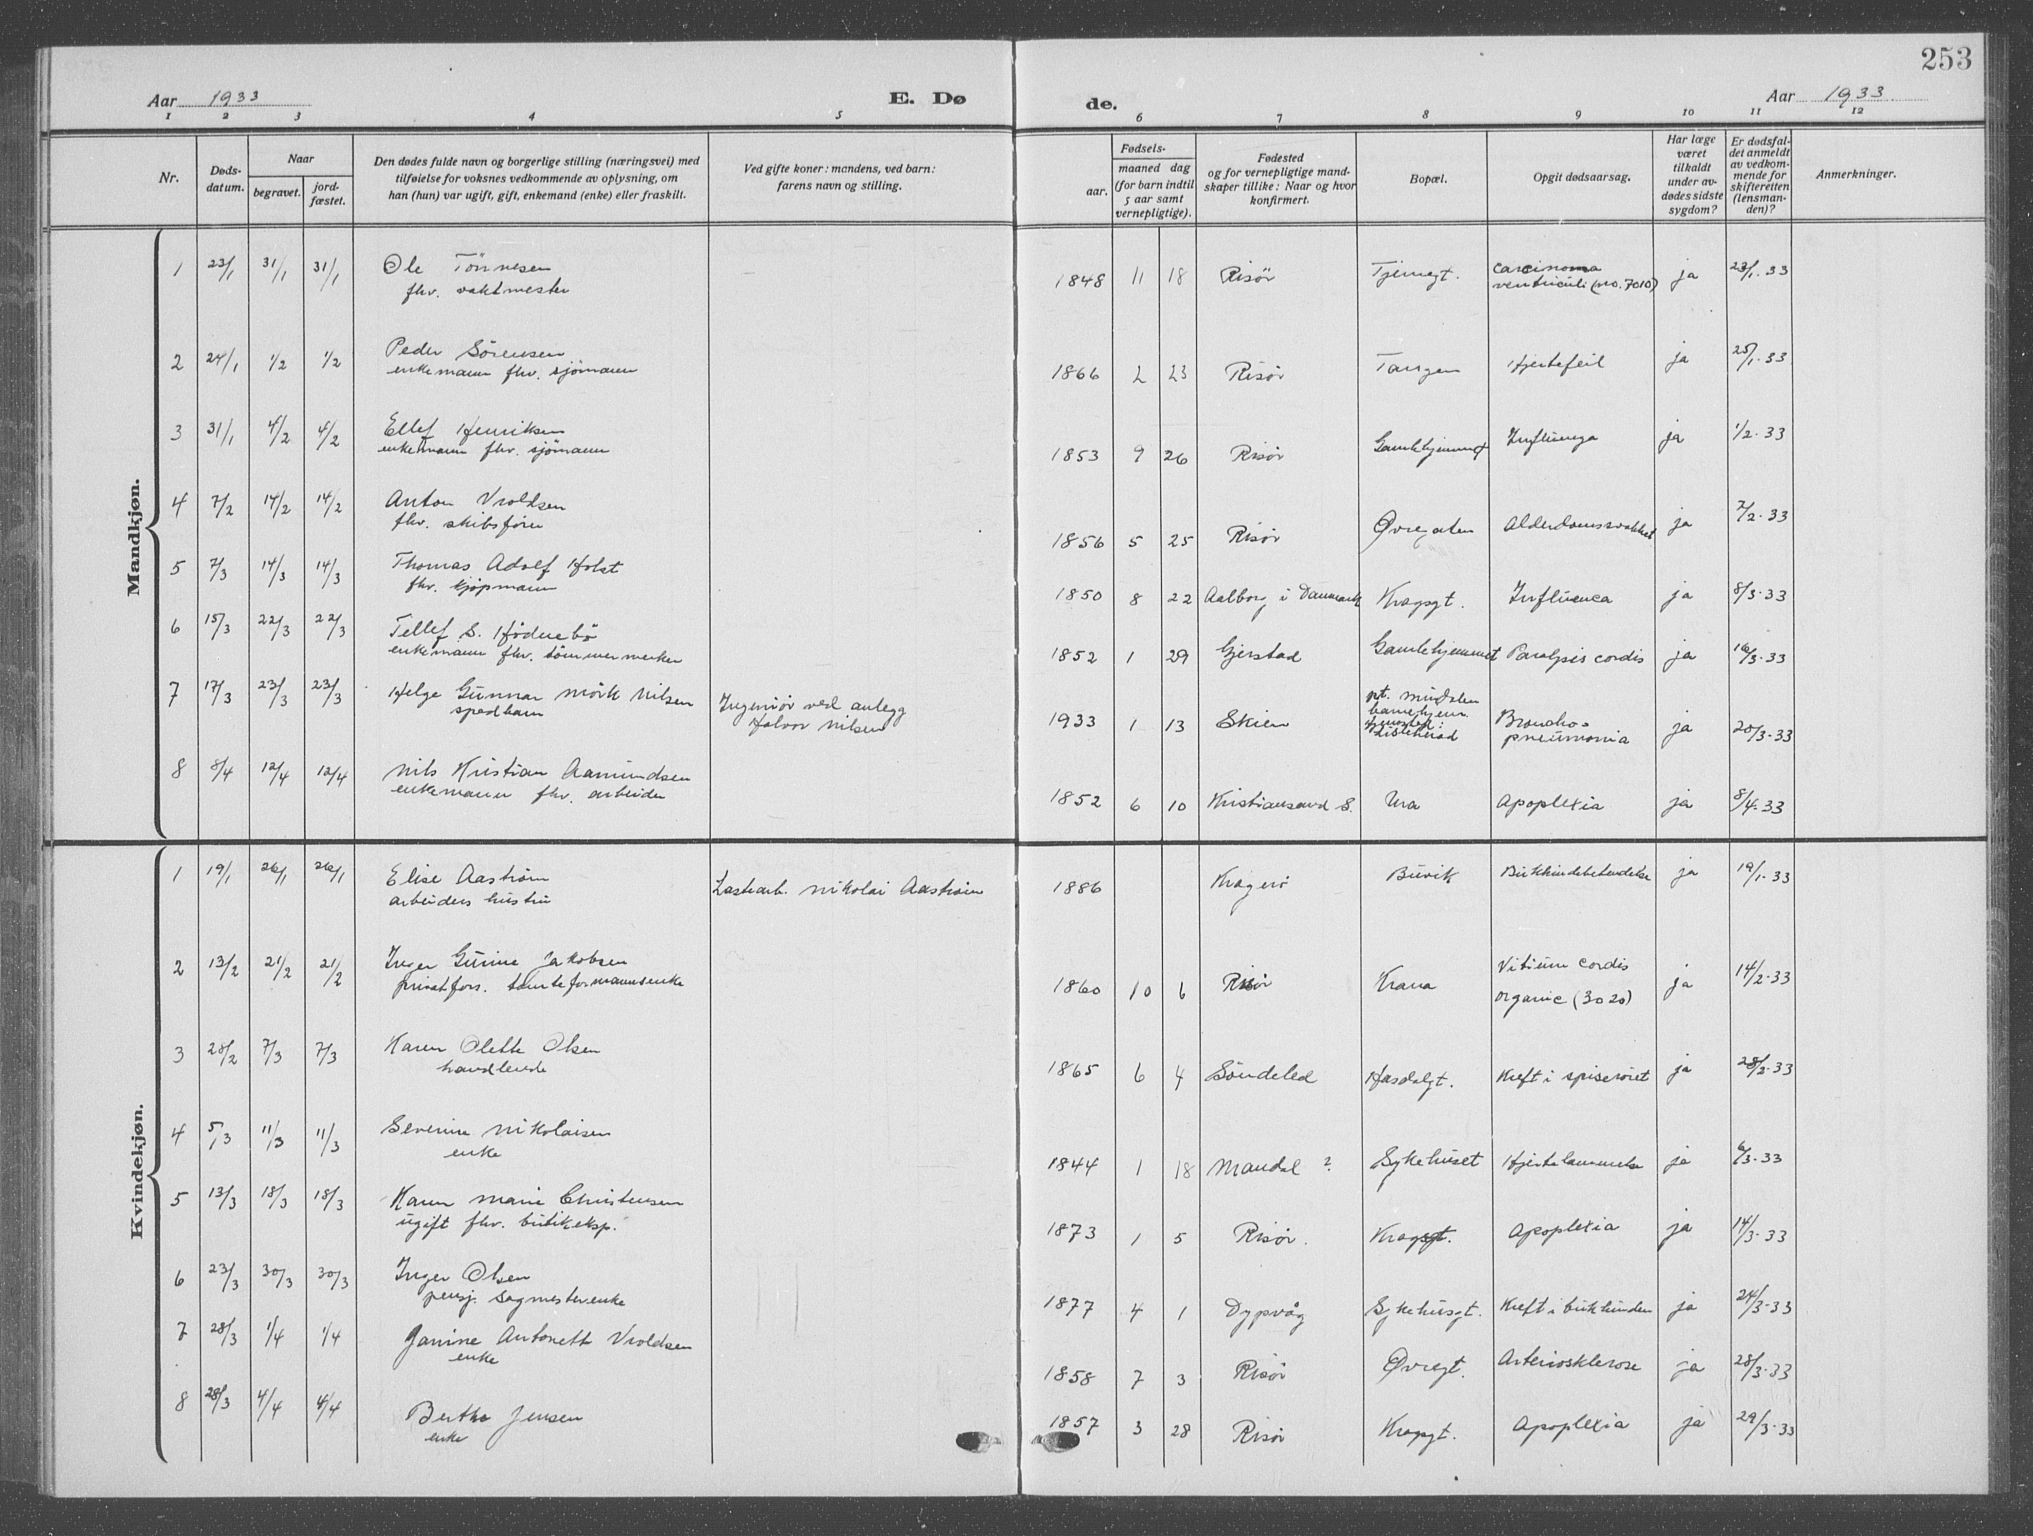 253
Aar 1933
E. Dø
de.
Aar 1933
1 2 3 4 5 6 7 8 9 10 11 12
Nr.
Døds-
datum.
Naar
begravet.
jord-
fæstet.
Den dødes fulde navn og borgerlige stilling (næringsvei) med
tilføielse for voksnes vedkommende av oplysning, om
han (hun) var ugift, gift, enkemand (enke) eller fraskilt.
Ved gifte koner: mandens, ved barn:
farens navn og stilling.
Fødsels-
aar.
maaned dag
(for barn indtil
5 aar samt
vernepligtige).
Fødested
og for vernepligtige mand-
skaper tillike: Naar og hvor
konfirmert.
Bopæl.
Opgit dødsaarsag.
Har læge
været
tilkaldt
under av-
dødes sidste
sygdom?
Er dødsfal-
det anmeldt
av vedkom-
mende for
skifteretten
(lensman-
den)?
Anmerkninger.
Mandkjøn.
1 23/1 31/1 31/1 Ole Tönnesen 1848 11 18 Risör Tjenngt. Carcinoma ja 23/1.33
fhv. vaktmester ventriculi (no. 7010)
2 24/1 1/2 1/2 Peder Sörensen 1866 2 23 Risör Tangen Hjertefeil ja 25/1.33
enkemann fhv. sjömann
3 31/1 4/2 4/2 Ellef Henriksen 1853 9 26 Risör Gamlehjemmet Influenza ja 1/2.33
enkemann fhv. sjömann
4 7/2 14/2 14/2 Anton Vroldsen 1856 5 25 Risör Øvregaten Alderdomssvakhet ja 7/2.33
fhv. skibsförer
5 7/3 14/3 14/3 Thomas Adolf Holst 1850 8 22 Aalborg i Danmark Kragsgt. Influenca ja 8/3.33
fhv. kjøpmann
6 15/3 22/3 22/3 Tellef S. Hödnebö 1852 1 29 Gjerstad Gamlehjemmet Paralysis cordis ja 16/3.33
enkemann fhv. tömmermerker
7 17/3 23/3 23/3 Helge Gunnar Mörk Nilsen Ingeniör ved anlegg 1933 1 13 Skien pt. Broncho- ja 20/3.33
spedbarn Halvor Nilsen barnehjem pneumonia
8 8/4 12/4 12/4 Nils Kristian Aamundsen 1852 6 10 Kristiansand S. Ura Apoplexia ja 8/4.33
enkemann fhv. arbeider
Kvindekjøn.
1 19/1 26/1 26/1 Elise Aaström Lastearb. Nikolai Aaström 1886 Kragerö Buvik Bukhindebetendelse ja 19/1.33
arbeiders hustru
2 13/2 21/2 21/2 Inger Gurine Jakobsen 1860 10 6 Risör Krana Vitium cordis ja 14/2.33
privatfors. tomteformannsenke organic (3020)
3 28/2 7/3 7/3 Karen Olette Olsen 1865 6 4 Söndeled Hasdalgt. Kreft i spiseröret ja 28/2.33
handlende
4 5/3 11/3 11/3 Severine Nikolaisen 1844 1 18 Mandal ? Sykehuset Hjertelammelse ja 6/3.33
enke
5 13/3 18/3 18/3 Karen Marie Christensen 1873 1 5 Risör. Kragsgt. Apoplexia ja 14/3.33
ugift fhv. butikeksp.
6 23/3 30/3 30/3 Inger Olsen 1877 4 1 Dypvåg Sykehusgt. Kreft i bukhinden ja 24/3.33
pensj. sagmesterenke
7 28/3 1/4 1/4 Janine Antonette Vroldsen 1858 7 3 Risör Øvregt. Arteriosklerose ja 28/3.33
enke
8 28/3 4/4 4/4 Berthe Jensen 1857 3 28 Risör Kragsgt. Apoplexia ja 29/3.33
enke